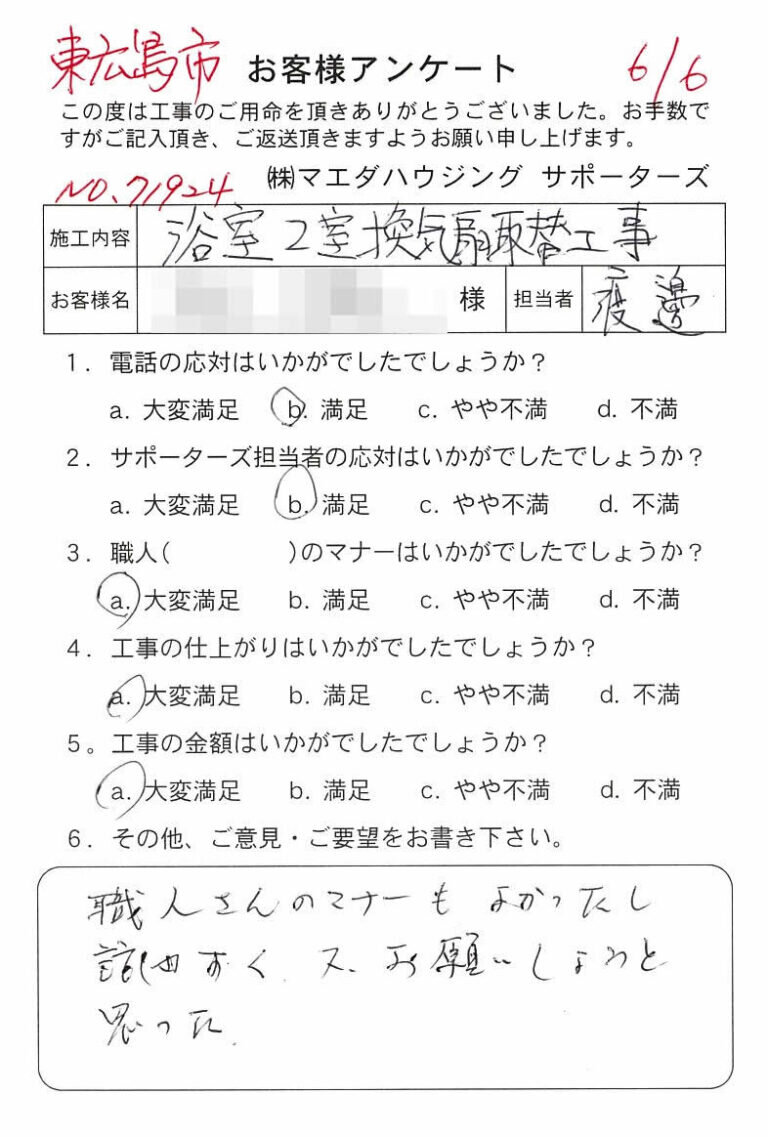 東広島市 お客様アンケート 6/6
この度は工事のご用命を頂きありがとうございました。お手数で
すがご記入頂き、ご返送頂きますようお願い申し上げます。
NO.71924 ㈱マエダハウジング サポーターズ
施工内容 浴室2室換気扇取替工事
お客様名 様 担当者 渡邊
1. 電話の応対はいかがでしたでしょうか?
a. 大変満足 b. 満足 c. やや不満 d. 不満
2. サポーターズ担当者の応対はいかがでしたでしょうか?
a. 大変満足 b. 満足 c. やや不満 d. 不満
3. 職人( )のマナーはいかがでしたでしょうか?
a. 大変満足 b. 満足 c. やや不満 d. 不満
4. 工事の仕上がりはいかがでしたでしょうか?
a. 大変満足 b. 満足 c. やや不満 d. 不満
5。工事の金額はいかがでしたでしょうか?
a. 大変満足 b. 満足 c. やや不満 d. 不満
6. その他、ご意見・ご要望をお書き下さい。
職人さんのマナーも よかったし
話しやすく、又、お願いしようと
思った。